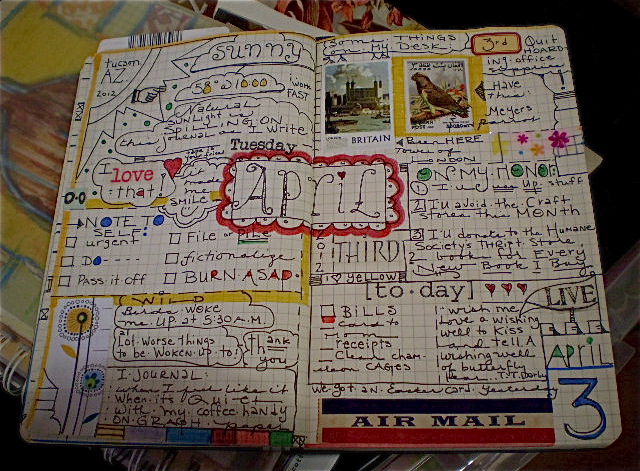 tucson
AZ
2012
SUNNY
58° @ 10:00
I WORK
FAST
Natural
SUNLIGHT is
SPILLING ON
this journal as I write
Tuesday
I love
that.
makes
me
SMILE
APRIL
NOTE TO
SELF:
urgent
File
PILE
DO----
fictionalize
Pass it off
BURN ASAP
WILD
Birds woke
me UP at 5:30 A.M.
Lot worse things
to be woken up to!
thank
you
I. JOURNAL.
when I feel like it
When it's Quiet
With my coffee handy
ON GRAPH paper
Some THINGS
On My Desk.
3rd
Quit
HOARD-
ING office
supplies
Have
these.
Meyers
BRITAIN
Been HERE
Tower of
LONDON
ON MY MONO:
1 I'll use up stuff
2 I'll avoid the Craft
stores this MONTH
3 I'll donate to the Humane
Society's Thrift Store
2 books for EVERY
New Book I Buy
2
0
1
2
THIRD
I ♥ yellow
[to·day]
BILLS
card to
Mom
receipts
Clean cham-
eleon CAGES
I wish me
Love a wishing
well to Kiss
and tell A
wishing well
of butterfly
tears
LIVE
We got an Easter card yesterday
April
3
AIR MAIL